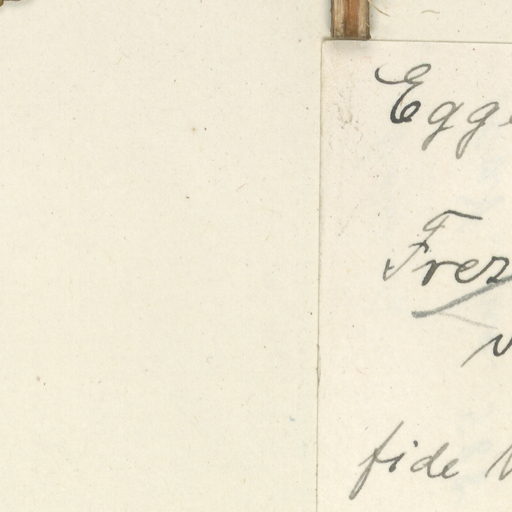 Egg
Frez
fide